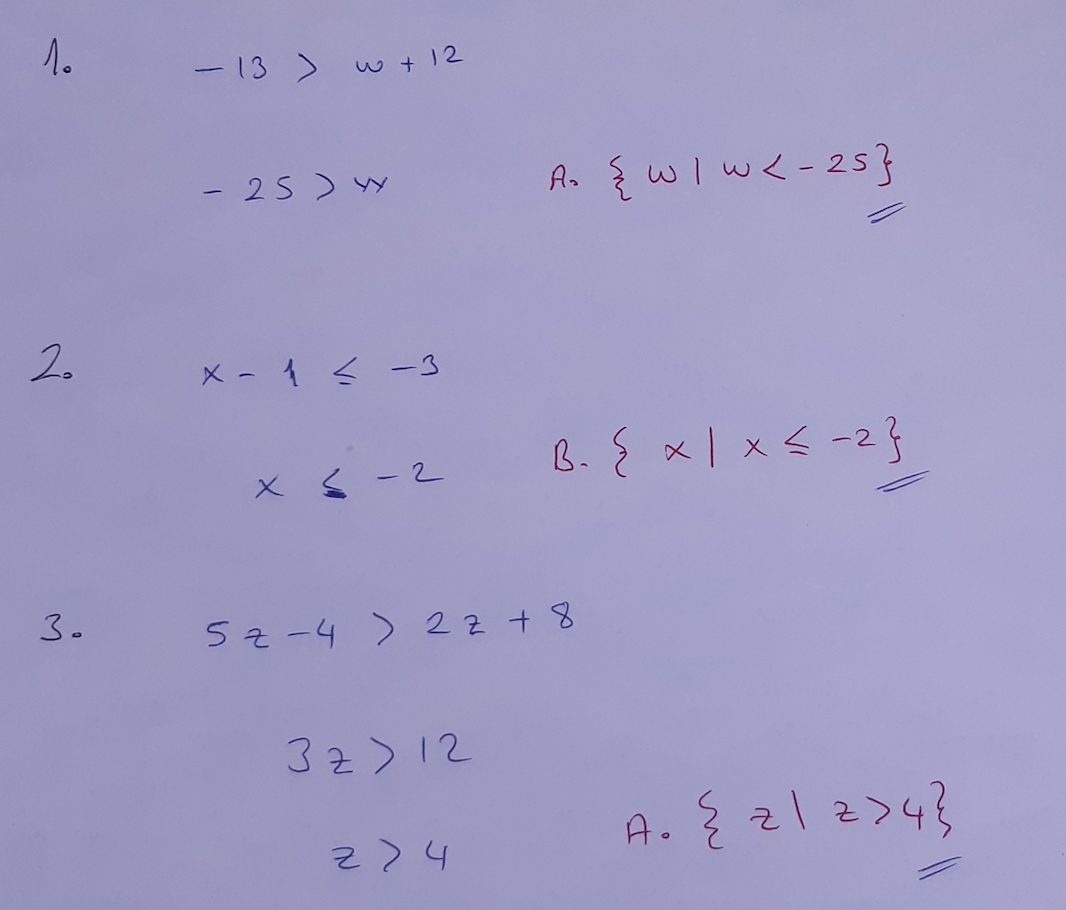 1. -13 > w + 12
-25 > w A. { w | w < -25 }
2. x - 1 ≤ -3
x ≤ -2 B. { x | x ≤ -2 }
3. 5z - 4 > 2z + 8
3z > 12
z > 4 A. { z | z > 4 }